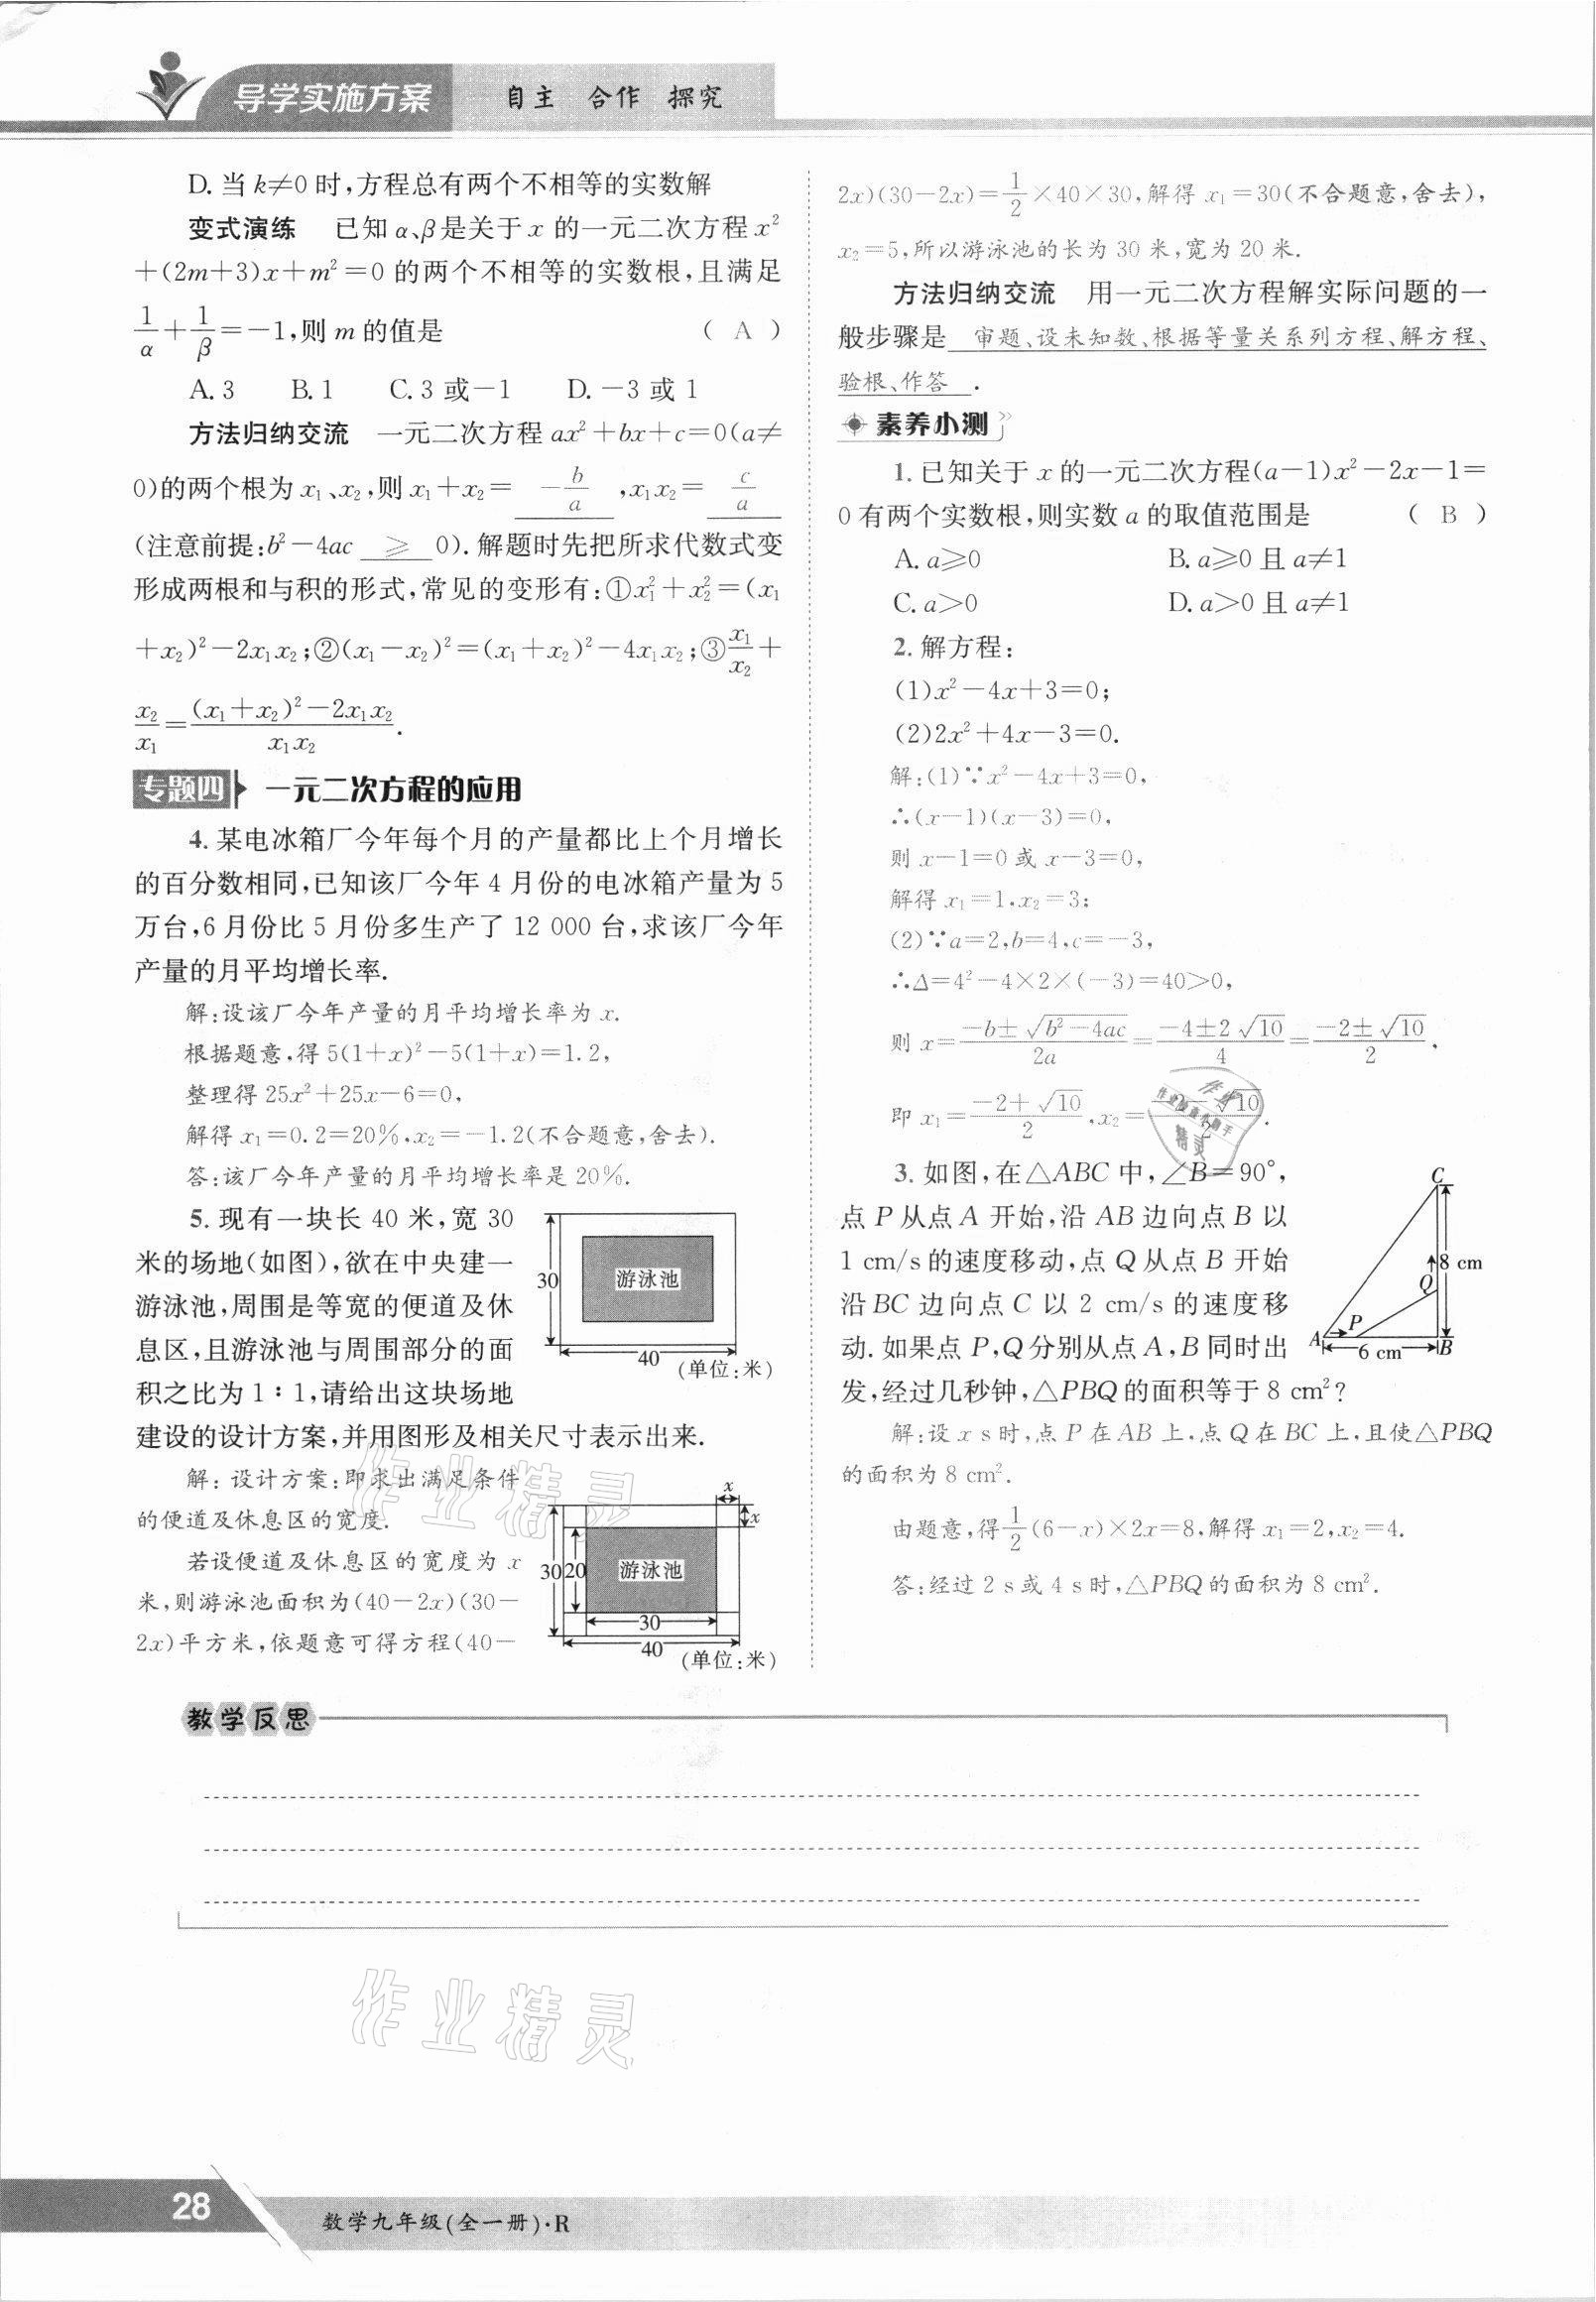 导学实施方案 自主 合作 探究
D. 当 k≠0 时,方程总有两个不相等的实数解
变式演练 已知 α、β是关于 x 的一元二次方程 x²
+(2m+3)x+m²=0 的两个不相等的实数根,且满足
1/α+1/β=-1,则 m 的值是 ( A )
A. 3 B. 1 C. 3 或-1 D. -3 或 1
方法归纳交流 一元二次方程 ax²+bx+c=0(a≠
0)的两个根为 x₁、x₂,则 x₁+x₂= -b/a ,x₁x₂= c/a
(注意前提:b²-4ac ≥ 0). 解题时先把所求代数式变
形成两根和与积的形式,常见的变形有:①x₁²+x₂²=(x₁
+x₂)²-2x₁x₂;②(x₁-x₂)²=(x₁+x₂)²-4x₁x₂;③x₁/x₂+
x₂/x₁=((x₁+x₂)²-2x₁x₂)/(x₁x₂).
专题四 一元二次方程的应用
4. 某电冰箱厂今年每个月的产量都比上个月增长
的百分数相同,已知该厂今年 4 月份的电冰箱产量为 5
万台,6 月份比 5 月份多生产了 12 000 台,求该厂今年
产量的月平均增长率.
解:设该厂今年产量的月平均增长率为 x.
根据题意,得 5(1+x)²-5(1+x)=1.2,
整理得 25x²+25x-6=0,
解得 x₁=0.2=20%,x₂=-1.2(不合题意,舍去).
答:该厂今年产量的月平均增长率是 20%.
5. 现有一块长 40 米,宽 30
米的场地(如图),欲在中央建一
游泳池,周围是等宽的便道及休
息区,且游泳池与周围部分的面
积之比为 1∶1,请给出这块场地
建设的设计方案,并用图形及相关尺寸表示出来.
30
游泳池
40
(单位:米)
解: 设计方案:即求出满足条件
的便道及休息区的宽度.
若设便道及休息区的宽度为 x
米,则游泳池面积为(40-2x)(30-
2x)平方米,依题意可得方程(40-
x
x
30 20
游泳池
30
40
(单位:米)
2x)(30-2x)=1/2×40×30,解得 x₁=30(不合题意,舍去),
x₂=5,所以游泳池的长为 30 米,宽为 20 米.
方法归纳交流 用一元二次方程解实际问题的一
般步骤是 审题、设未知数、根据等量关系列方程、解方程、
验根、作答 .
素养小测
1. 已知关于 x 的一元二次方程(a-1)x²-2x-1=
0 有两个实数根,则实数 a 的取值范围是 ( B )
A. a≥0 B. a≥0 且 a≠1
C. a>0 D. a>0 且 a≠1
2. 解方程:
(1)x²-4x+3=0;
(2)2x²+4x-3=0.
解:(1)∵x²-4x+3=0,
∴(x-1)(x-3)=0,
则 x-1=0 或 x-3=0,
解得 x₁=1,x₂=3;
(2)∵a=2,b=4,c=-3,
∴Δ=4²-4×2×(-3)=40>0,
则 x=(-b±√(b²-4ac))/2a=(-4±2√10)/4=(-2±√10)/2,
即 x₁=(-2+√10)/2,x₂=(-2-√10)/2.
3. 如图,在△ABC 中,∠B=90°,
点 P 从点 A 开始,沿 AB 边向点 B 以
1 cm/s 的速度移动,点 Q 从点 B 开始
沿 BC 边向点 C 以 2 cm/s 的速度移
动. 如果点 P,Q 分别从点 A,B 同时出
发,经过几秒钟,△PBQ 的面积等于 8 cm²?
C
8 cm
Q
A P B
6 cm
解:设 x s 时,点 P 在 AB 上,点 Q 在 BC 上,且使△PBQ
的面积为 8 cm².
由题意,得1/2(6-x)×2x=8,解得 x₁=2,x₂=4.
答:经过 2 s 或 4 s 时,△PBQ 的面积为 8 cm².
教学反思
作业精灵
作业精灵
28
数学九年级(全一册)·R